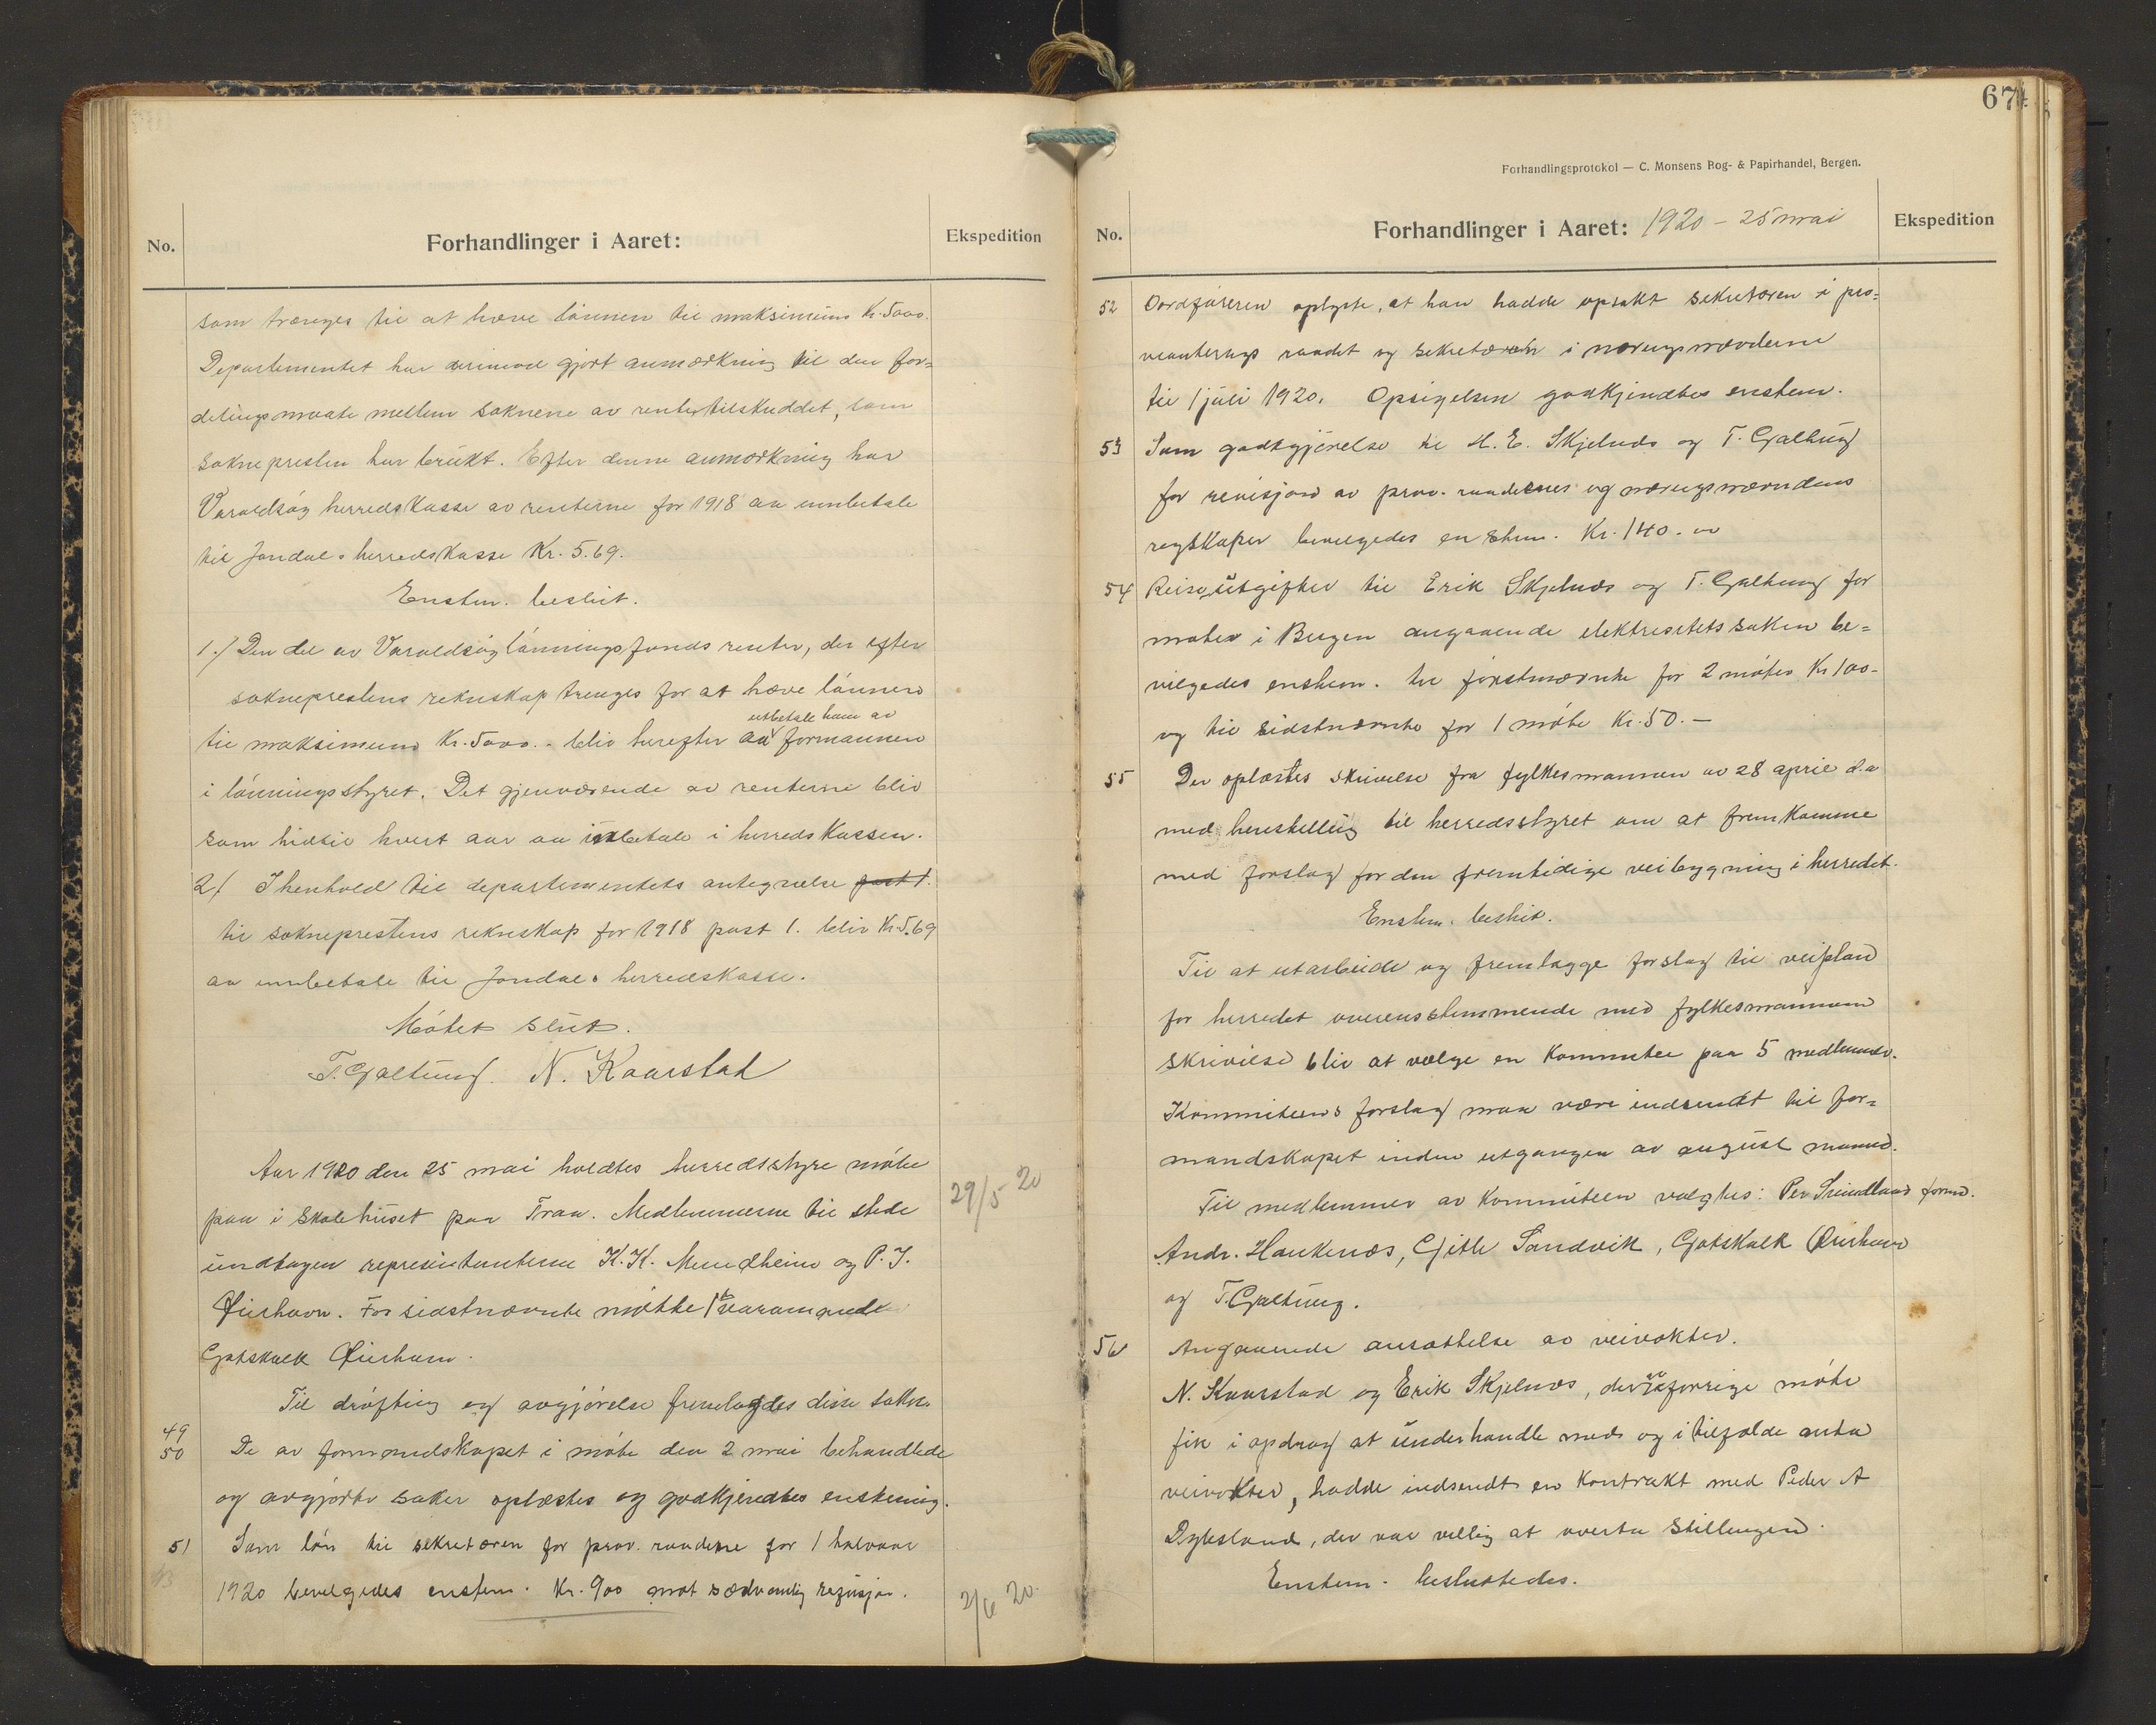 No.
Forhandlinger i Aaret:
Ekspedition
som trænges til at hæve lönnen til maksimum Kr. 5000.
Departementet har derimod gjort anmærkning til den for=
delingsmaate mellem soknene av rentetilskuddet, som
soknepresten har brukt. Efter denne anmærkning har
Varaldsöy herredskasse av renterne for 1918 aa innbetale
til Jondal s herredskasse Kr. 5.69.
Enstem. beslut.
1./ Den del av Varaldsöy lönningsfonds renter, der efter
sokneprestens rekneskap trenges for at hæve lönnen
utbetale ham av
til maksimum Kr. 5000.- bliv herefter aa formannen
i lönningsstyret. Det gjenværende av renterne bliv
som hidtil hvert aar aa innbetale i herredskassen.
2/ I henhold til departementets antegnelse post 1.
til sokneprestens rekneskap for 1918 post 1. bliv Kr. 5.69
aa innbetale til Jondal s herredskasse.
Mötet slut.
T. Galtung. N. Kaarstad
Aar 1920 den 25 mai holdtes herredsstyre möte
paa i skolehuset paa Traa. Medlemmerne til stede
undtagen representanterne K. K. Mundheim og P. J.
Øierhavn. For sidstnævnte mötte 1ste varamand
Gotskalk Øierhavn.
29/5 20
Til dröfting og avgjörelse fremlagdes disse saker
49
50 De av formandskapet i möte den 2 mai behandlede
og avgjorte saker oplæstes og godkjendtes enstemig.
51 Som lön til sekretæren for prov. raadene for 1 halvaar
1920 bevilgedes enstem. Kr. 900 mot sædvanlig revisjon.
2/6 20.
67
Forhandlingsprotokol — C. Monsens Bog- & Papirhandel, Bergen.
No.
Forhandlinger i Aaret: 1920 – 25 mai
Ekspedition
52 Ordföreren oplyste, at han hadde opsakt sekretæren i pro=
vianterings raadet og sekretæren i næringsnævderne
til 1 juli 1920. Opsigelsen godkjendtes enstem.
53 Som godtgjörelse til H. E. Skjelnæs og T. Galtung
for revisjon av prov. raadenes og næringsnævndens
regskaper bevilgedes enstem. Kr. 140.00
54 Reiseutgifter til Erik Skjelnæs og T. Galtung for
möter i Bergen angaaende elektrisitetssaken be=
vilgedes enstem. til förstnævnte for 2 möter Kr 100-
og til sidstnævnte for 1 möte Kr. 50.—
55 Der oplæstes skrivelse fra fylkesmannen av 28 april d.a
med henstilling til herredsstyret om at fremkomme
med forslag for den fremtidige veibygning i herredet.
Enstem. beslut.
Til at utarbeide og fremlægge forslag til veiplan
for herredet overensstemmende med fylkesmannens
skrivelse bliv at vælge en kommite paa 5 medlemmer.
Kommiteens forslag maa være indsendt til for=
mandskapet inden utgangen av august maaned.
Til medlemmer av kommiteen valgtes: Per formd.
Andr. Haukenæs, Gitle Sandvik, Gotskalk Øierhavn
og T. Galtung.
56 Angaaende ansættelse av veivokter.
N. Kaarstad og Erik Skjelnæs, der forrige möte
fik i opdrag at underhandle med og i tilfælde anta
veivokter, hadde indsendt en kontrakt med Peder A
Dykesland, der var villig at overta stillingen.
Enstem. besluttedes.